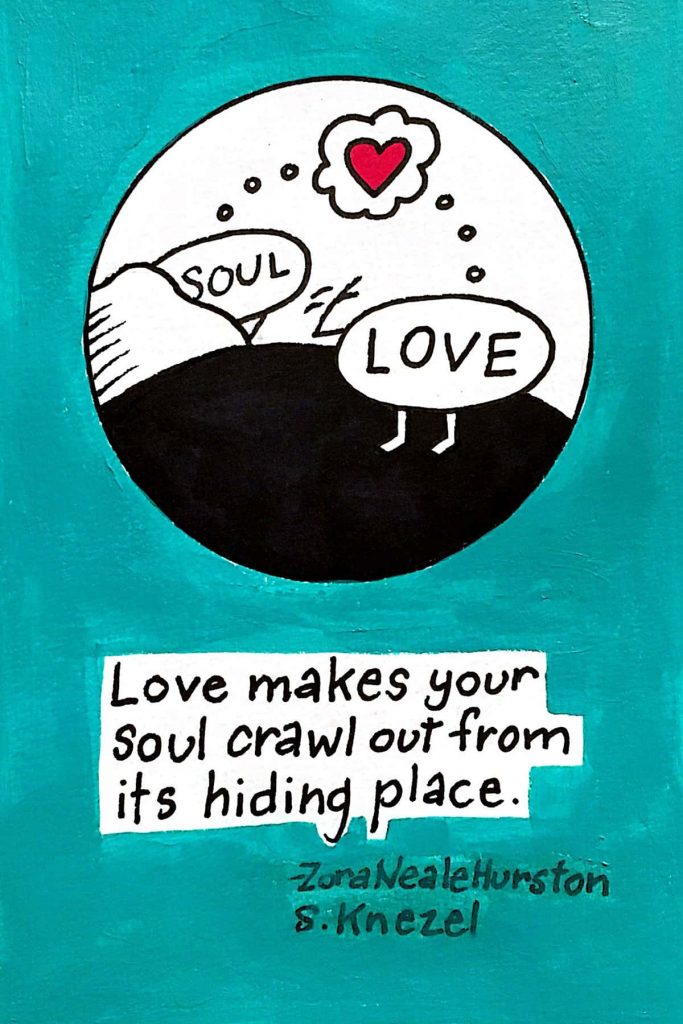 SOUL
LOVE
Love makes your
soul crawl out from
its hiding place.
-ZoraNealeHurston
S. Knezel